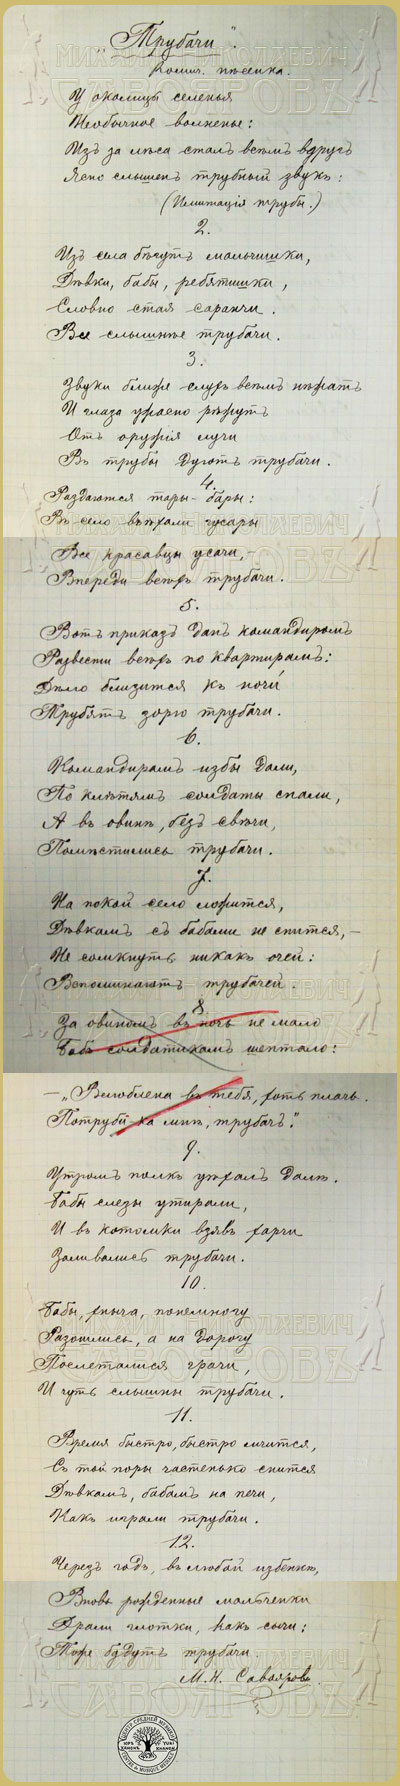 „Трубачи".
Комич. пѣсенка.
У околицы селенья
Необычное волненье:
Изъ за лѣса сталъ всѣмъ вдругъ
Ясно слышенъ трубный звукъ:
(Имитацiя трубы.)
2.
Изъ села бѣгутъ мальчишки,
Дѣвки, бабы, ребятишки,
Словно стая саранчи.
Все слышнѣе трубачи.
3.
Звуки ближе слухъ всѣмъ нѣжатъ
И глаза ужасно рѣжутъ
Отъ оружiя лучи
Въ трубы дуютъ трубачи.
4.
Раздаются тары-бары:
Въ село въѣхали гусары
Все красавцы усачи, –
Впереди всѣхъ трубачи.
5.
Вотъ приказъ данъ командиромъ
Развести всѣхъ по квартирамъ:
Дѣло близится къ ночи
Трубятъ зорю трубачи.
6.
Командирамъ избы дали,
По клѣтямъ солдаты спали,
А въ овинѣ, безъ свѣчи,
Помѣстились трубачи.
7.
На покой село ложится,
Дѣвкамъ съ бабами не спится, –
Не сомкнуть никакъ очей:
Вспоминаютъ трубачей.
8.
За овиномъ въ ночь не мало
Бабъ солдатикамъ шептало:
– „Влюблена въ тебя, хоть плачь.
Потруби ка мнѣ, трубачъ."
9.
Утромъ полкъ уѣхалъ далѣ.
Бабы слезы утирали,
И въ котомки взявъ харчи
Заливались трубачи.
10.
Бабы, хныча, понемногу
Разошлись, а на дорогу
Послетались грачи,
И чуть слышны трубачи.
11.
Время быстро, быстро мчится,
Съ той поры частенько снится
Дѣвкамъ, бабамъ на печи,
Какъ играли трубачи.
12.
Черезъ годъ, въ любой избенкѣ,
Вновь рожденные мальченки
Драли глотки, какъ сычи:
Тоже будутъ трубачи.
М. Н. Савояровъ
МИХАИЛЪ НИКОЛАЕВИЧ
САВОЯРОВЪ
ЦЕНТР СРЕДНЕЙ МУЗЫКИ
ЮРЪ ХАНОНЪ
YURI KHANON
CENTRE DE MUSIQUE MEDIANE